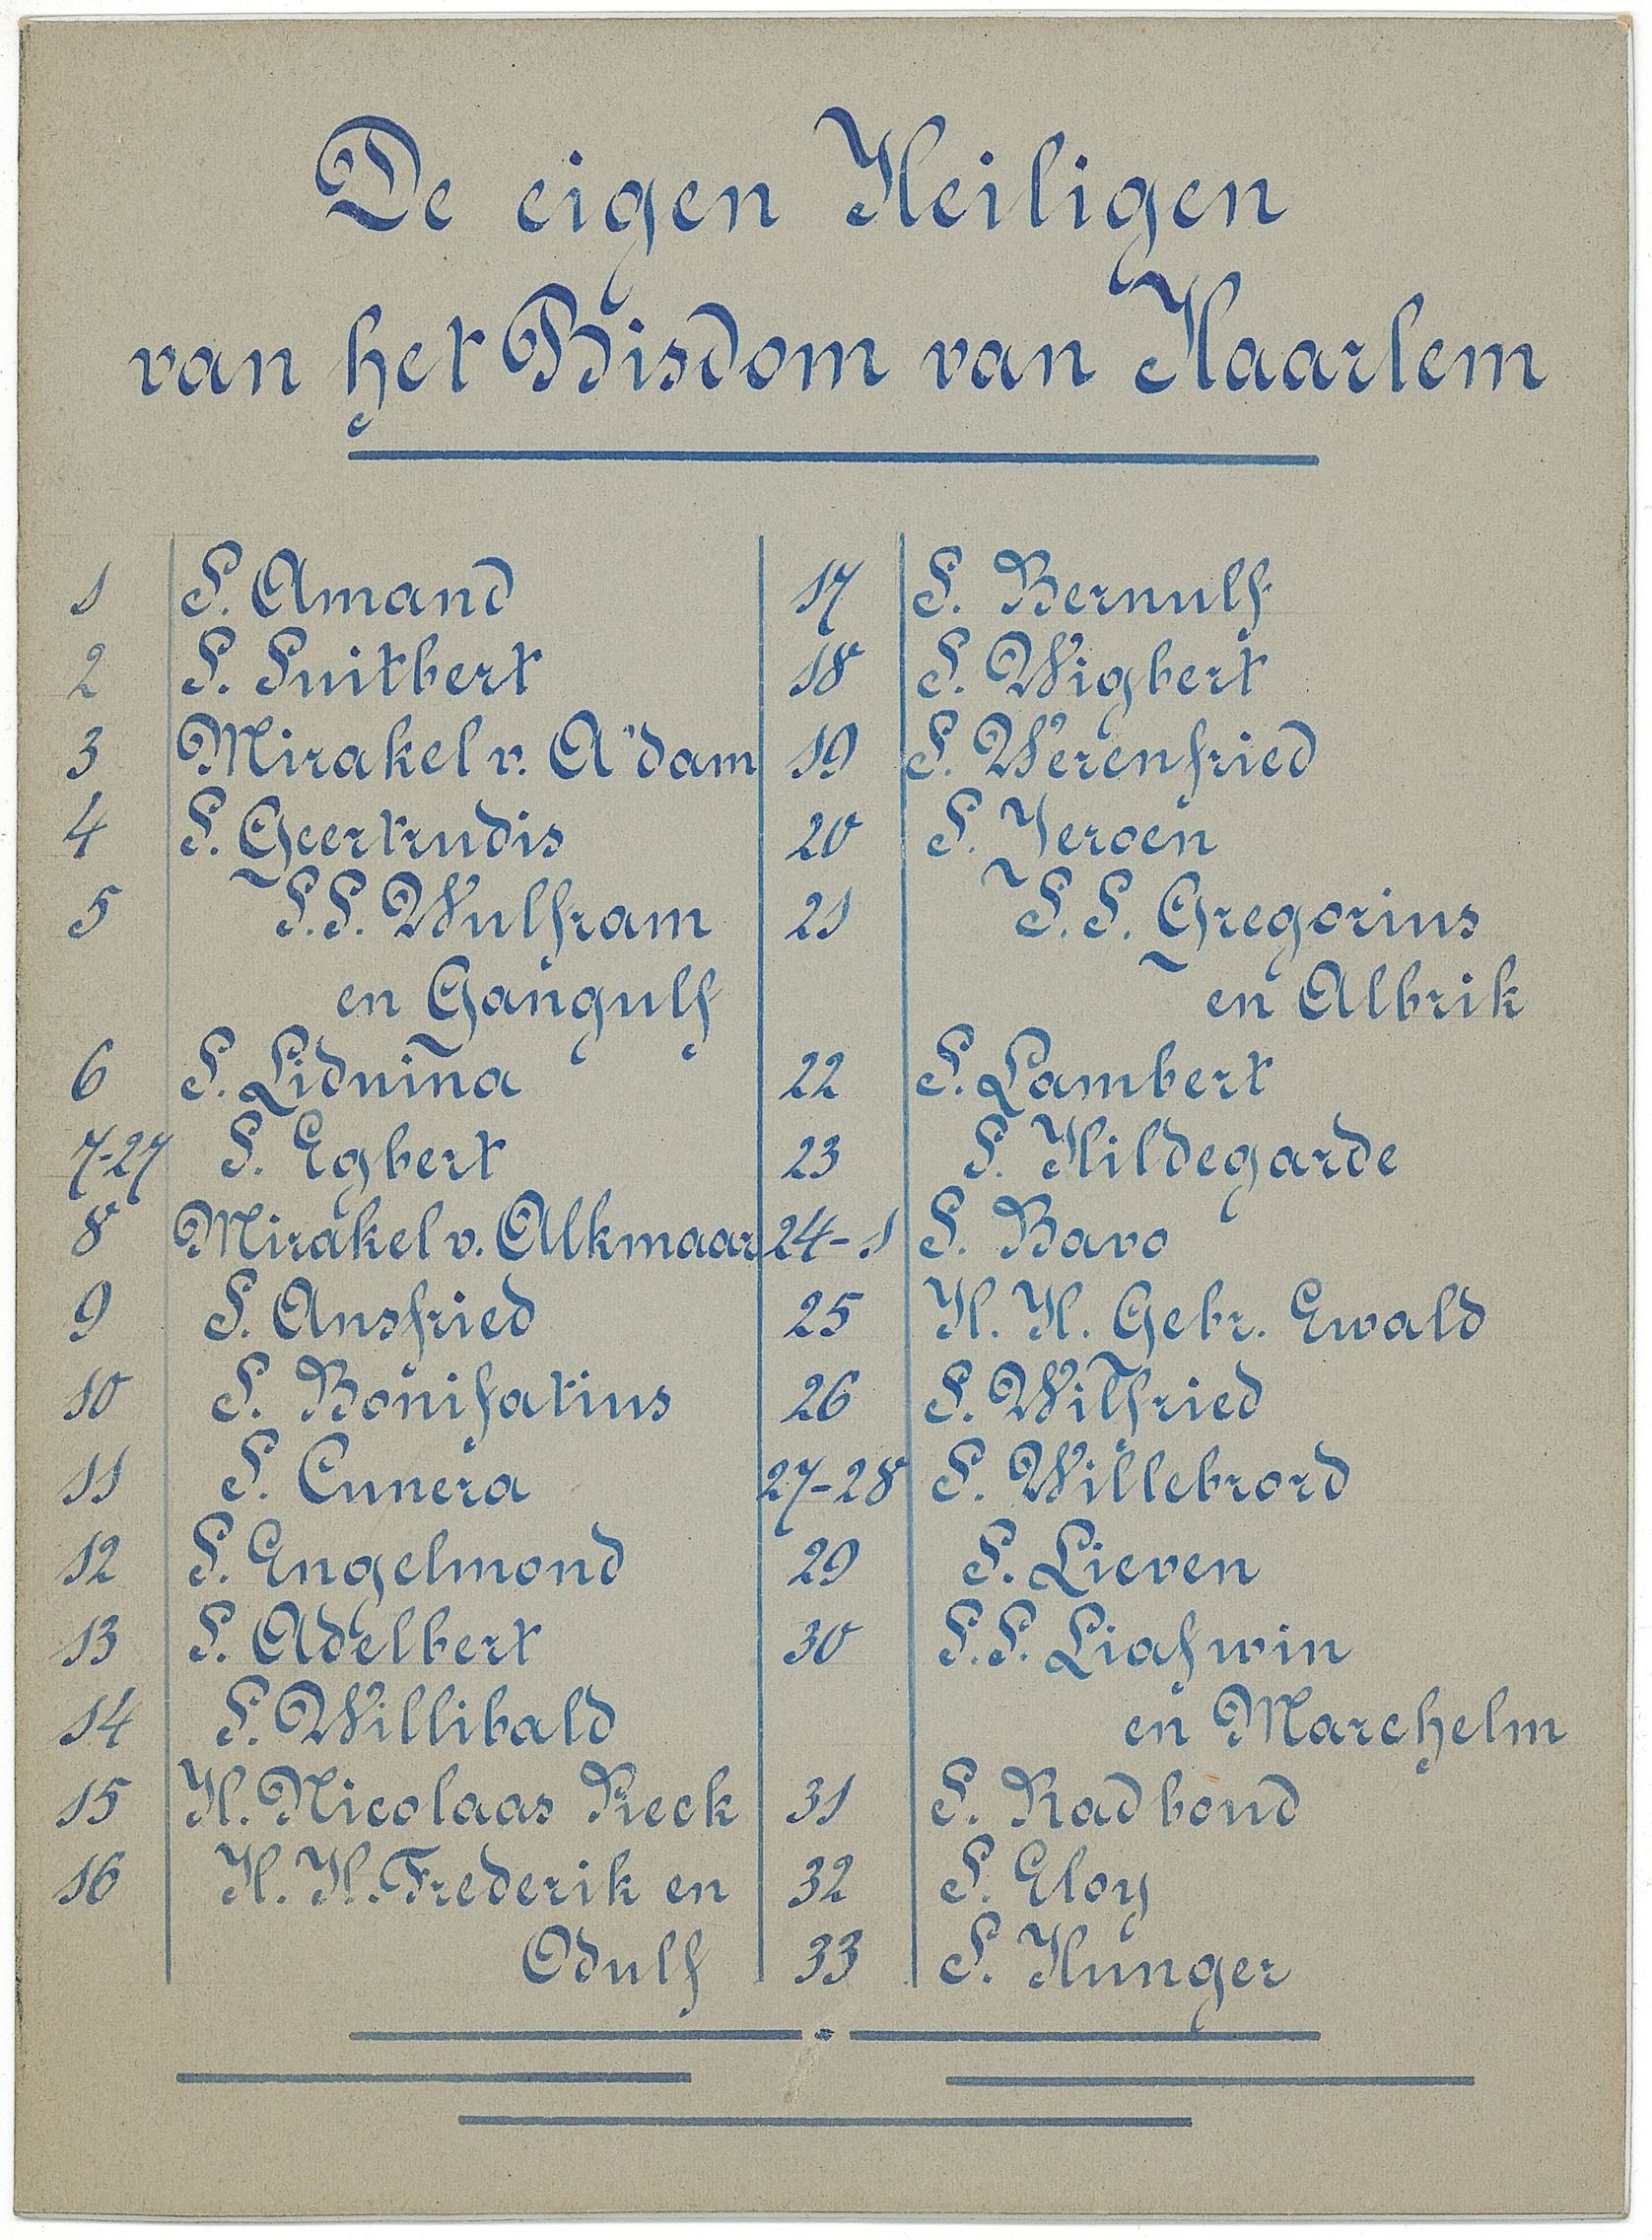 De eigen Heiligen
van het Bisdom van Haarlem
1 S. Amand
2 S. Suitbert
3 Mirakel v. A'dam
4 S. Geertrudis
5 S.S. Wulfram
en Gangulf
6 S. Liduina
7-27 S. Egbert
8 Mirakel v. Alkmaar
9 S. Ansfried
10 S. Bonifatius
11 S. Cunera
12 S. Engelmond
13 S. Adelbert
14 S. Willibald
15 H. Nicolaas Pieck
16 H. H. Frederik en
Odulf
17 S. Bernulf
18 S. Wigbert
19 S. Werenfried
20 S. Jeroen
21 S. S. Gregorius
en Albrik
22 S. Lambert
23 S. Hildegarde
24-1 S. Bavo
25 H. H. Gebr. Ewald
26 S. Wilfried
27-28 S. Willebrord
29 S. Lieven
30 S.S. Liafwin
en Marchelm
31 S. Radboud
32 S. Eloy
33 S. Hunger